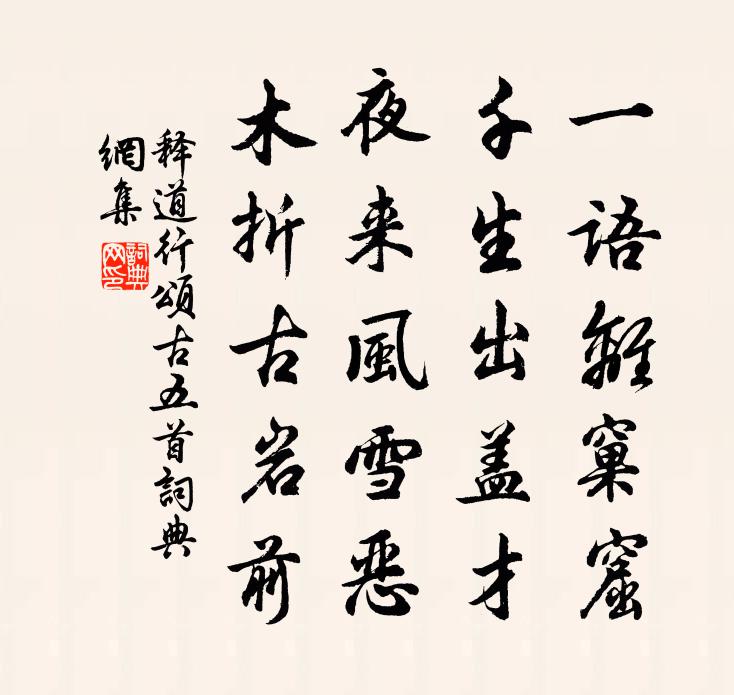 一語離窠窟
千生出盖才
夜来風雪恶
木折古岩前
释道行頌古五首詞典
網集
詞典
网印